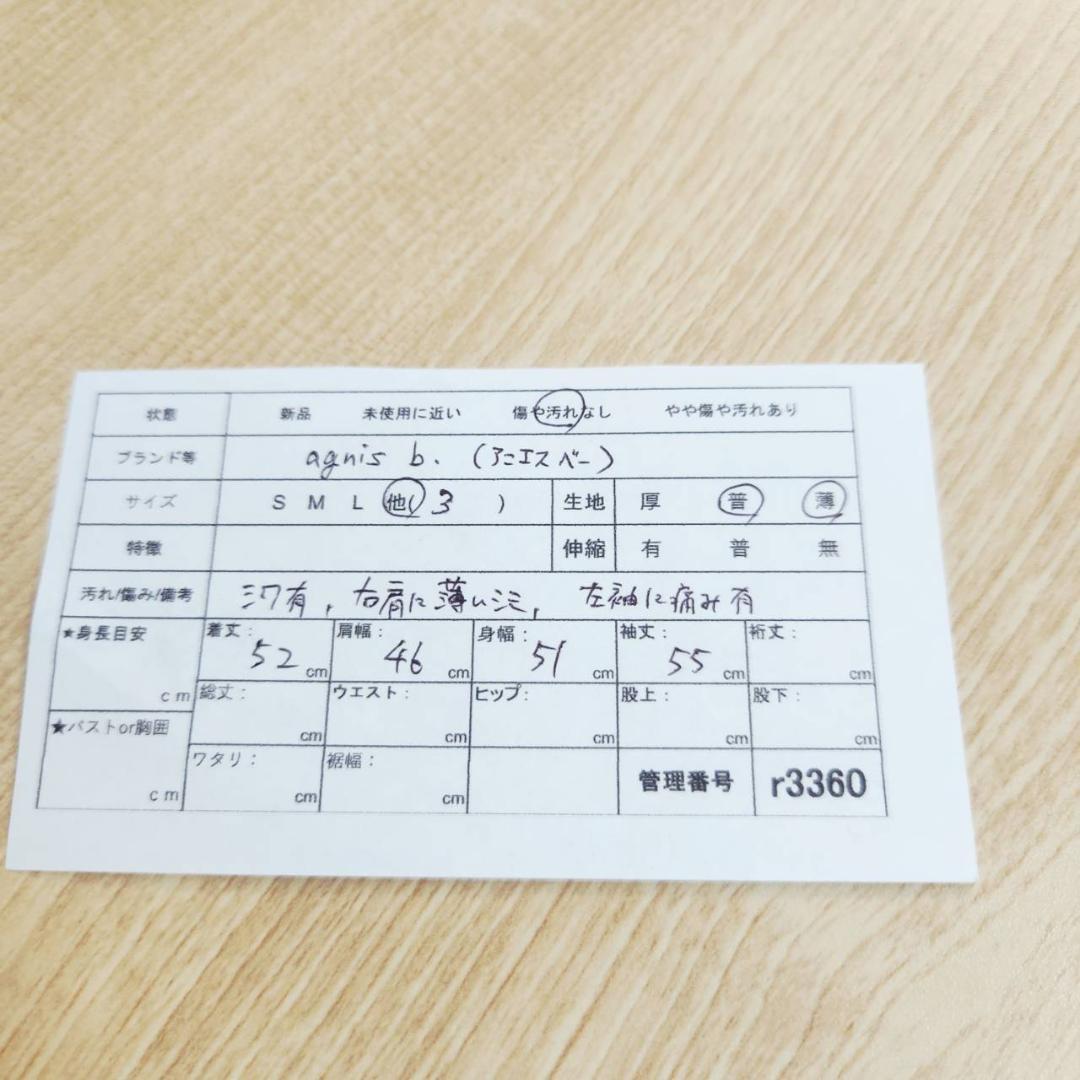 状態 新品 未使用に近い 傷や汚れなし やや傷や汚れあり
ブランド等 agnis b. (アニエスベー)
サイズ S M L 他( 3 ) 生地 厚 普 薄
特徴 伸縮 有 普 無
汚れ/傷み/備考 シワ有, 右肩に薄いシミ, 左袖に痛み有
★身長目安 cm 着丈: 52 cm 肩幅: 46 cm 身幅: 51 cm 袖丈: 55 cm 裄丈: cm
総丈: cm ウエスト: cm ヒップ: cm 股上: cm 股下: cm
★バストor胸囲 cm ワタリ: cm 裾幅: cm 管理番号 r3360